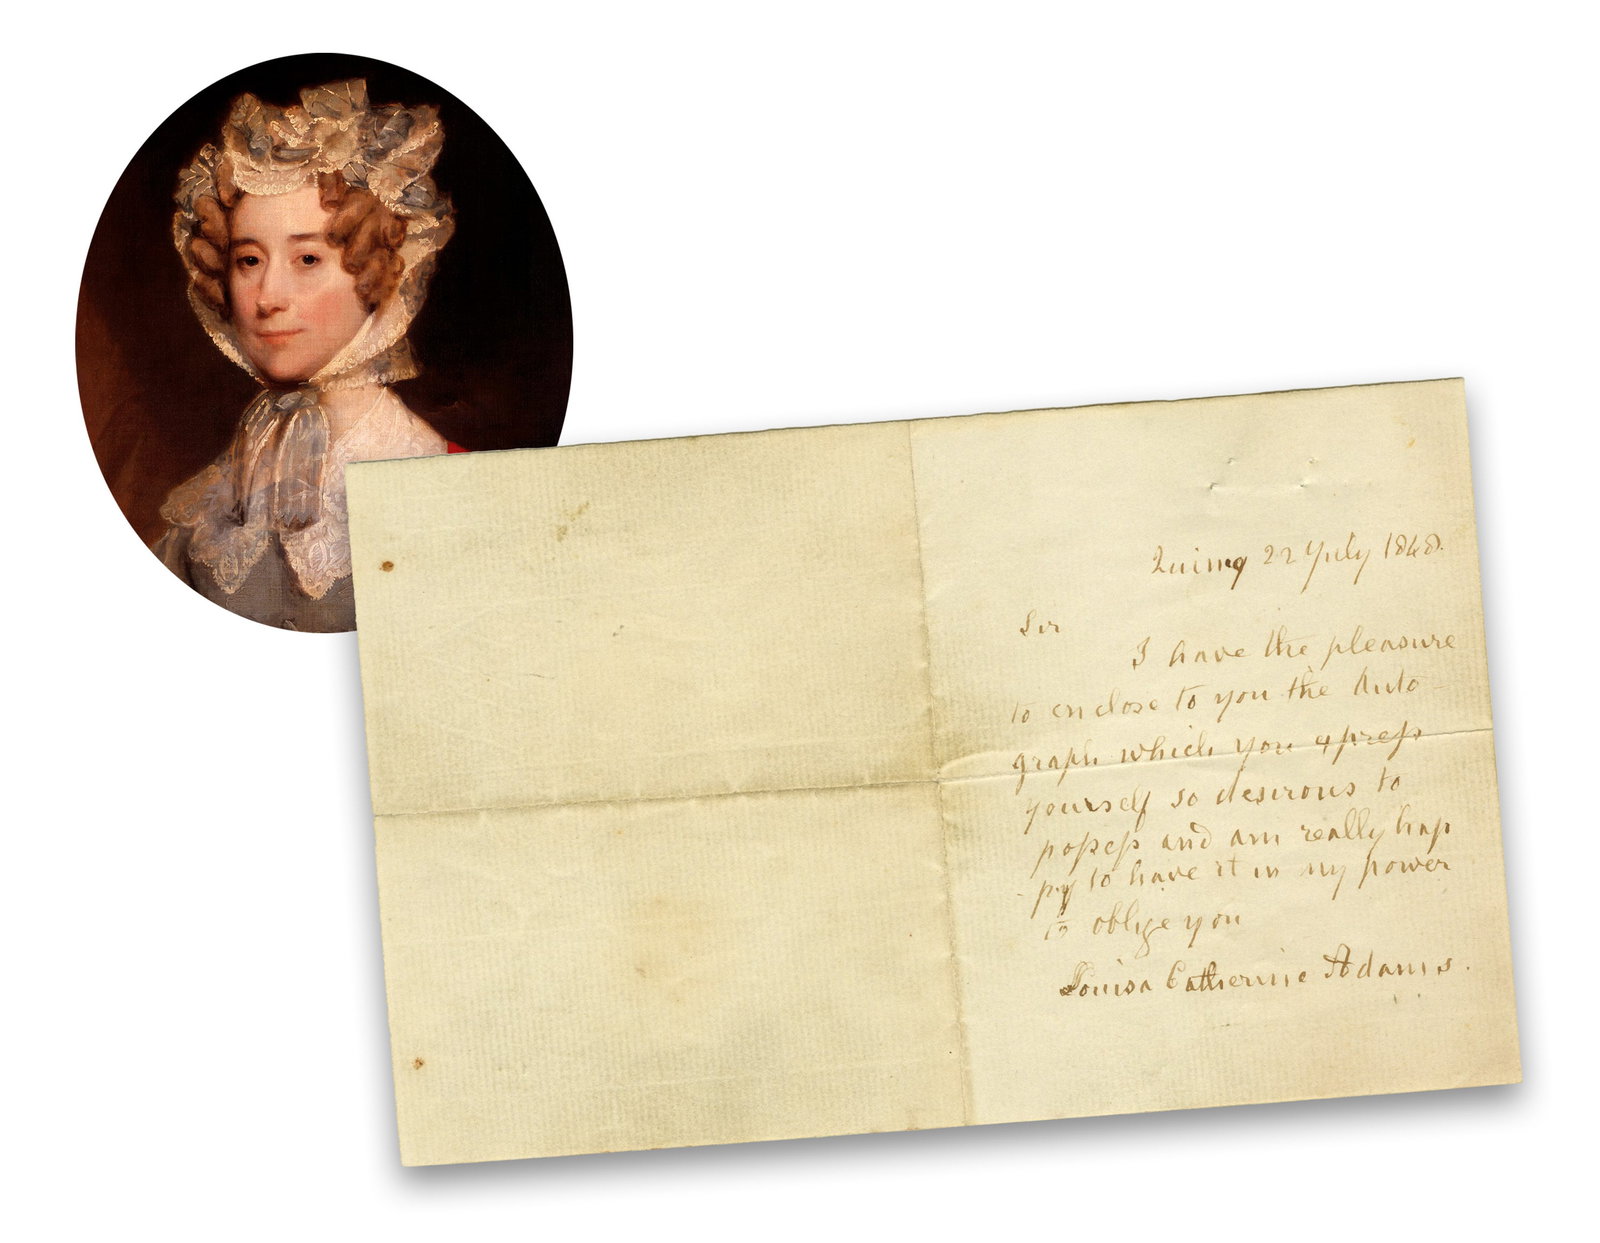 Quincy 22 July 1848.
Sir
I have the pleasure
to enclose to you the Auto-
graph which you express
yourself so desirous to
possess and am really hap
-py to have it in my power
to oblige you
Louisa Catherine Adams.